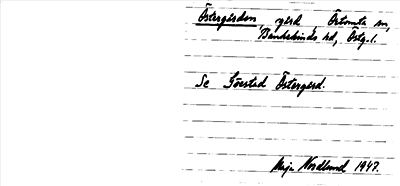 Östergården gård, Örtomta sn,
Bankekinds hd, Östg. l.
Se Görstad Östergård.
Maja Nordlund 1947.